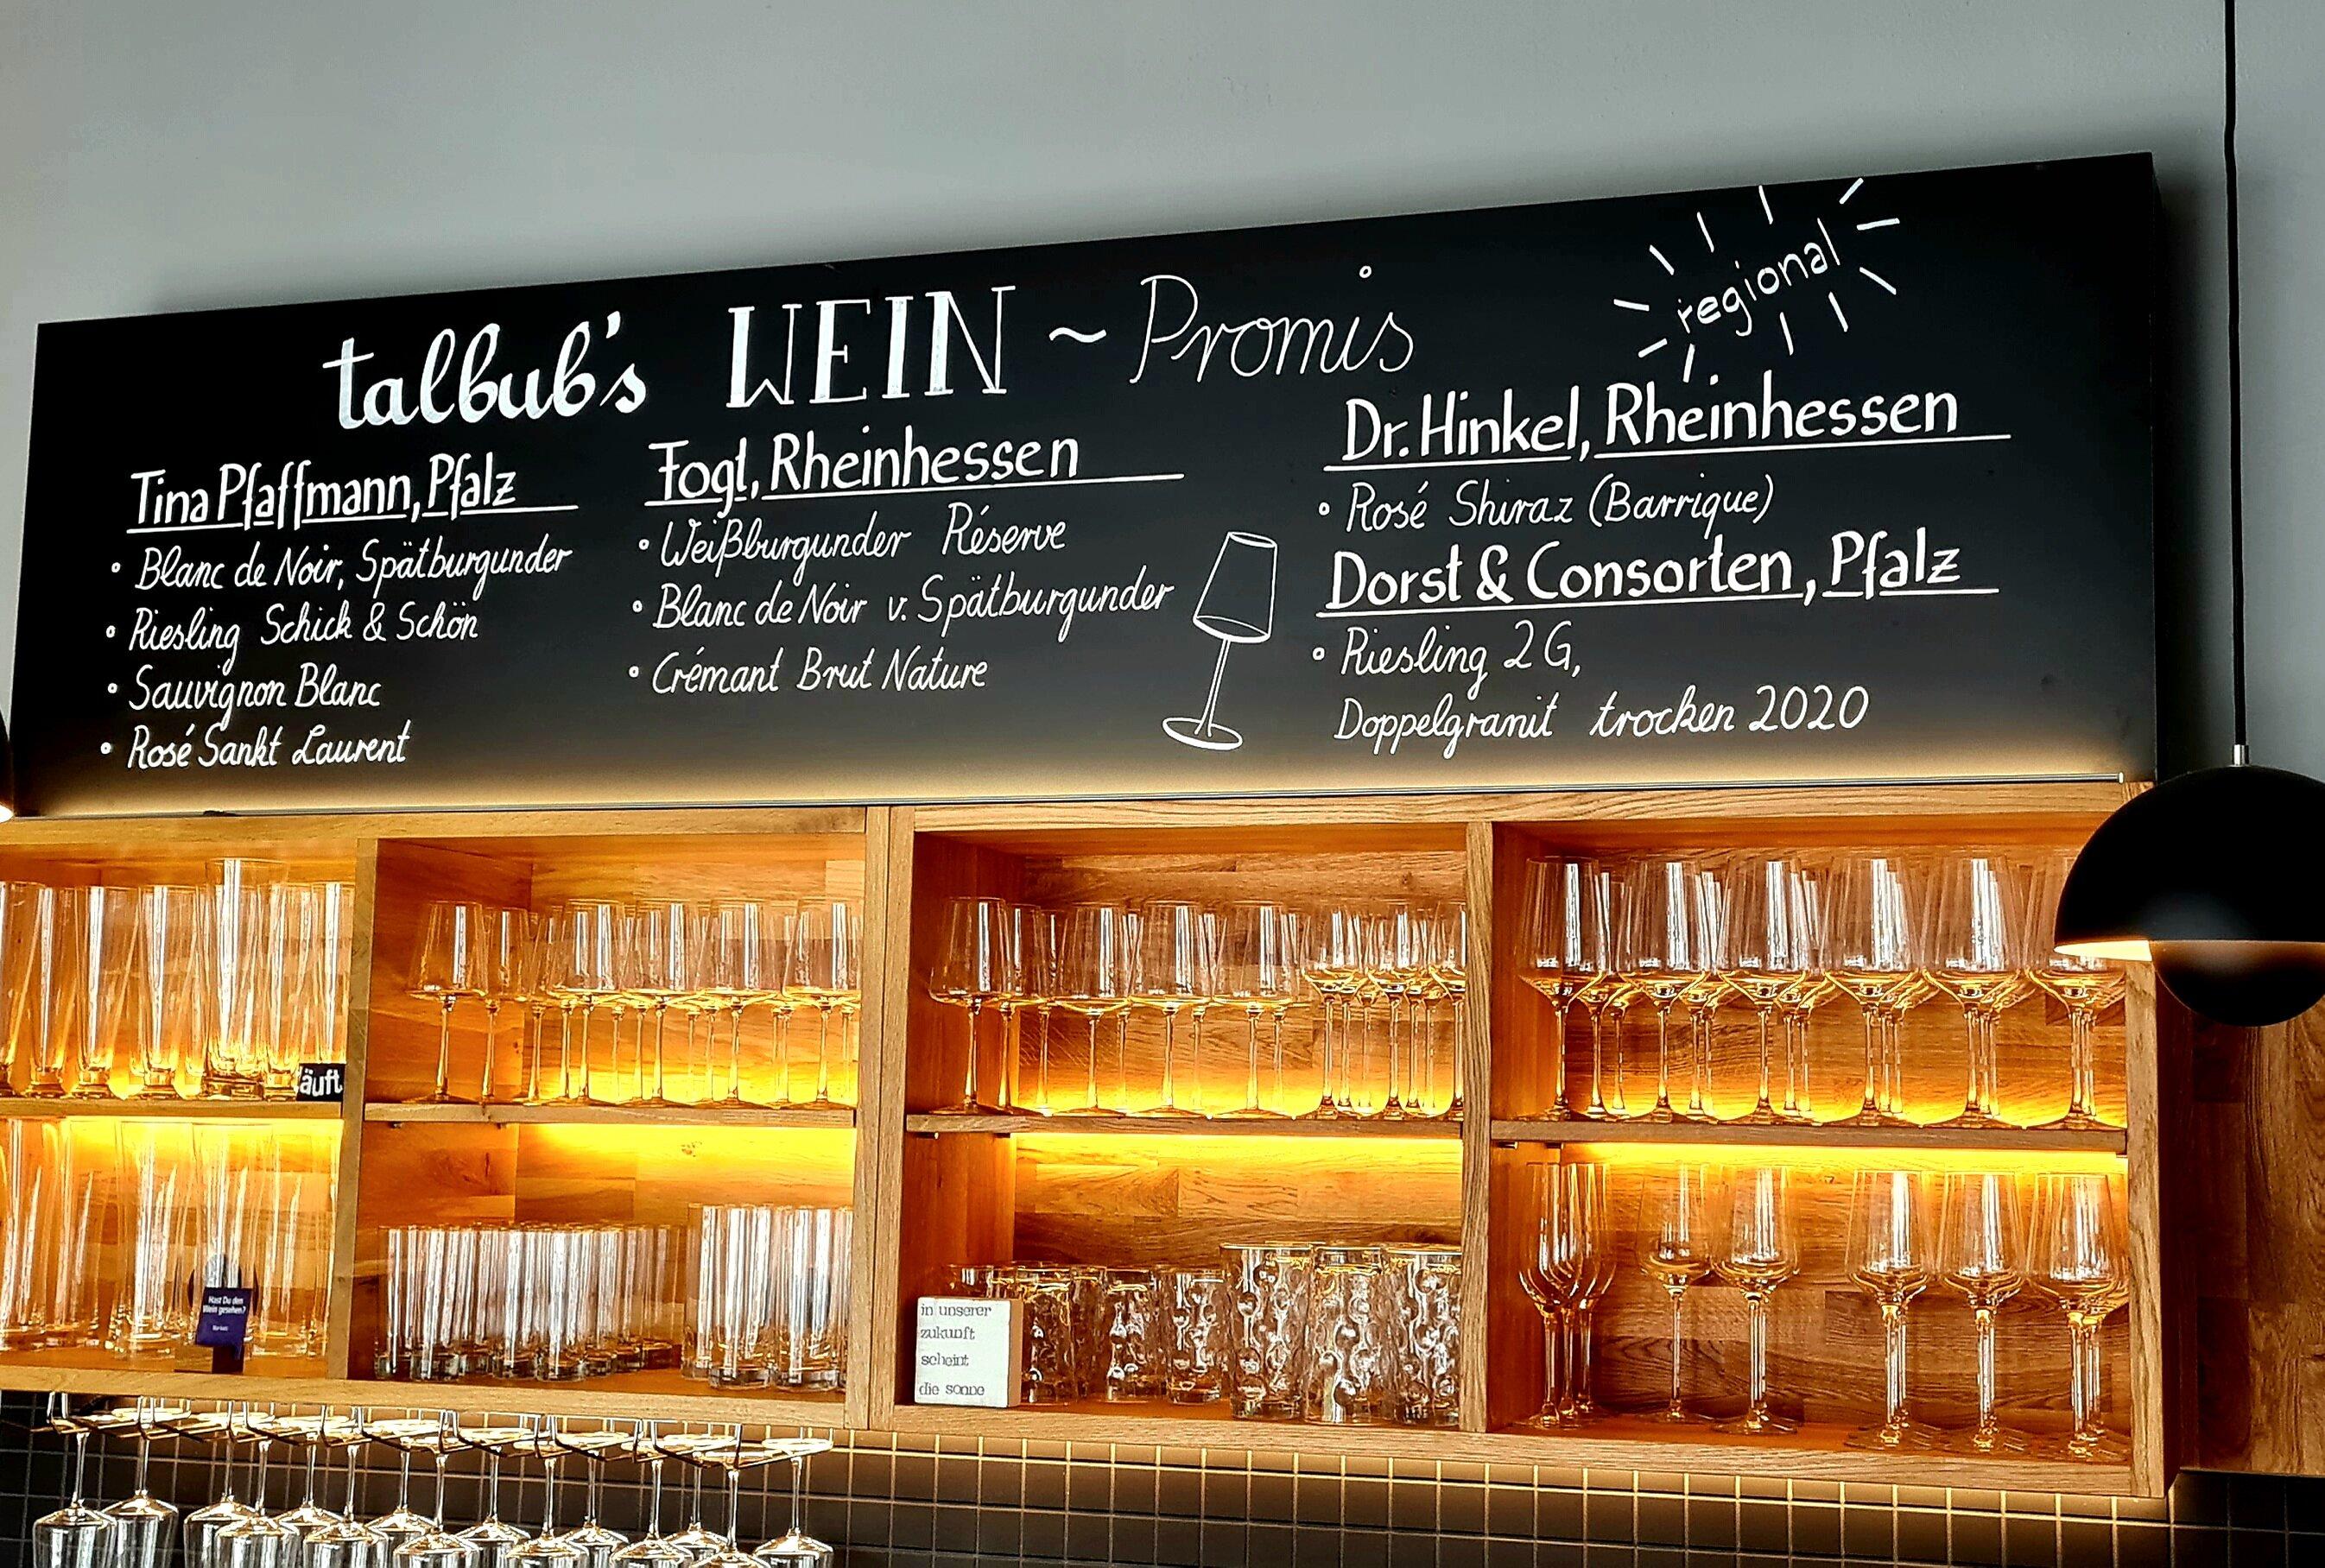 talbub's WEIN ~ Promis
regional
Tina Pfaffmann, Pfalz
• Blanc de Noir, Spätburgunder
• Riesling Schick & Schön
• Sauvignon Blanc
• Rosé Sankt Laurent
Fogt, Rheinhessen
• Weißburgunder Réserve
• Blanc de Noir v. Spätburgunder
• Crémant Brut Nature
Dr. Hinkel, Rheinhessen
• Rosé Shiraz (Barrique)
Dorst & Consorten, Pfalz
• Riesling 2G,
Doppelgranit trocken 2020
äuft
Hast Du den
Wein gesehen?
in unserer
zukunft
scheint
die sonne